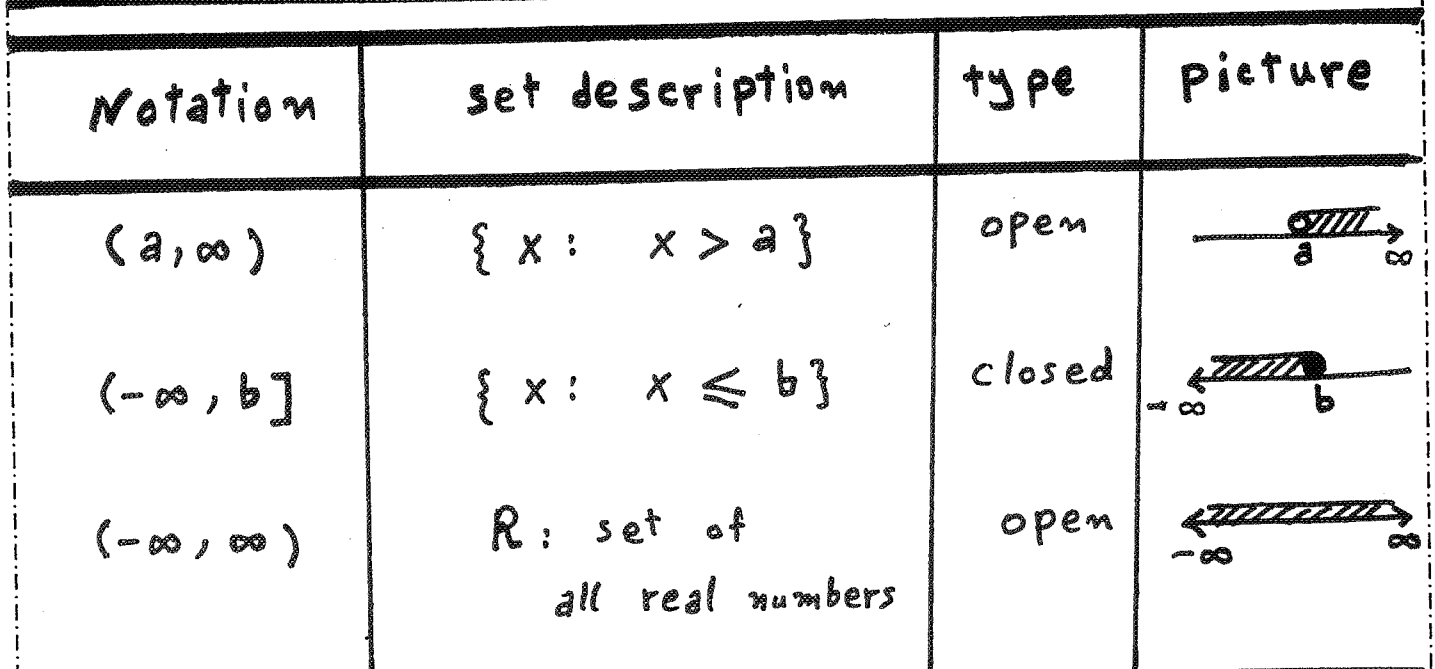 Notation set description type picture
(a, ∞) { x : x > a } open a ∞
(-∞, b] { x : x ≤ b } closed -∞ b
(-∞, ∞) R : set of open -∞ ∞
all real numbers